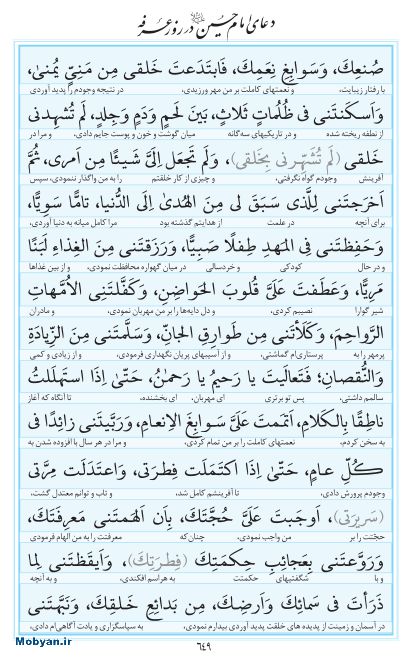 دعای امام حسین در روز عرفه
صُنعِكَ، وَسَوابِغِ نِعَمِكَ، فَابتَدَعتَ خَلقى مِن مَنِىٍّ يُمنىٰ،
با رفتار زیبایت، و نعمتهای کاملت بر من مهر ورزیدی، در نتیجه وجودم را پدید آوردی
وَاَسكَنتَنى فى ظُلُماتٍ ثَلاثٍ، بَينَ لَحمٍ وَدَمٍ وَجِلدٍ، لَم تُشهِدنى
از نطفه ریخته شده و در تاریکیهای سه‌گانه میان گوشت و خون و پوست جایم دادی، و مرا در
خَلقى (لَم تُشَهِّرنى بِخَلقى) ، وَلَم تَجعَل اِلَىَّ شَيئًا مِن اَمرى، ثُمَّ
آفرینش وجودم گواه نگرفتی، و چیزی از کار خلقتم را به من واگذار ننمودی، سپس
اَخرَجتَنى لِلَّذى سَبَقَ لى مِنَ الهُدىٰ اِلَى الدُّنيا، تامًّا سَوِيًّا،
برای آنچه در علمت از هدایتم گذشته بود مرا کامل میانه به دنیا آوردی،
وَحَفِظتَنى فِى المَهدِ طِفلًا صَبِيًّا، وَرَزَقتَنى مِنَ الغِذاءِ لَبَنًا
و در حال کودکی و خردسالی در میان گهواره محافظت نمودی، و از بین غذاها
مَرِيًّا، وَعَطَفتَ عَلَىَّ قُلوبَ الحَواضِنِ، وَكَفَّلتَنِى الاُمَّهاتِ
شیر گوارا نصیبم کردی، و دل دایه‌ها را بر من مهربان نمودی، و مادران
الرَّواحِمَ، وَكَلَأتَنى مِن طَوارِقِ الجانِّ، وَسَلَّمتَنى مِنَ الزِّيادَةِ
پرمهر را به پرستاری‌ام گماشتی، و از آسیبهای پریان نگهداری فرمودی، و از زیادی و کمی
وَالنُّقصانِ؛ فَتَعالَيتَ يا رَحيمُ يا رَحمٰنُ، حَتّىٰ اِذَا استَهلَلتُ
سالمم داشتی، پس تو برتری ای مهربان، ای بخشنده، تا آنگاه که آغاز
ناطِقًا بِالكَلامِ، اَتمَمتَ عَلَىَّ سَوابِغَ الاِنعامِ، وَرَبَّيتَنى زائِدًا فى
به سخن کردم، نعمتهای کاملت را بر من تمام کردی، و مرا در هر سال با افزوده شدن به
كُلِّ عامٍ، حَتّىٰ اِذَا اكتَمَلَت فِطرَتى، وَاعتَدَلَت مِرَّتى
وجودم پرورش دادی، تا آفرینشم کامل شد، و تاب و توانم معتدل گشت،
(سَريرَتى) ، اَوجَبتَ عَلَىَّ حُجَّتَكَ، بِاَن اَلهَمتَنى مَعرِفَتَكَ،
حجّتت را بر من واجب نمودی، چنان که معرفتت را به من الهام فرمودی
وَرَوَّعتَنى بِعَجائِبِ حِكمَتِكَ (فِطرَتِكَ) ، وَاَيقَظتَنى لِما
و با شگفتیهای حکمتت به هراسم افکندی، و به آنچه
ذَرَأتَ فى سَمائِكَ وَاَرضِكَ، مِن بَدائِعِ خَلقِكَ، وَنَبَّهتَنى
در آسمان و زمینت از پدیده های خلقت پدید آوردی بیدارم نمودی، به سپاسگزاری و یادت آگاهی‌ام دادی،
٦٤٩
Mobyan.ir